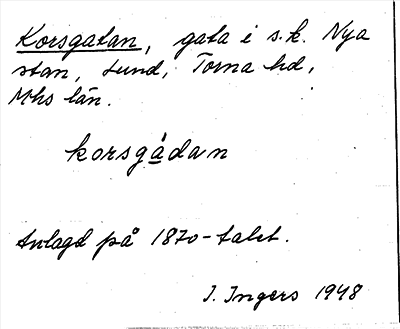 Korsgatan, gata i s.k. Nya
stan, Lund, Torna hd,
Mhs län.
korsgådan
Anlagd på 1870-talet.
I. Ingers 1948